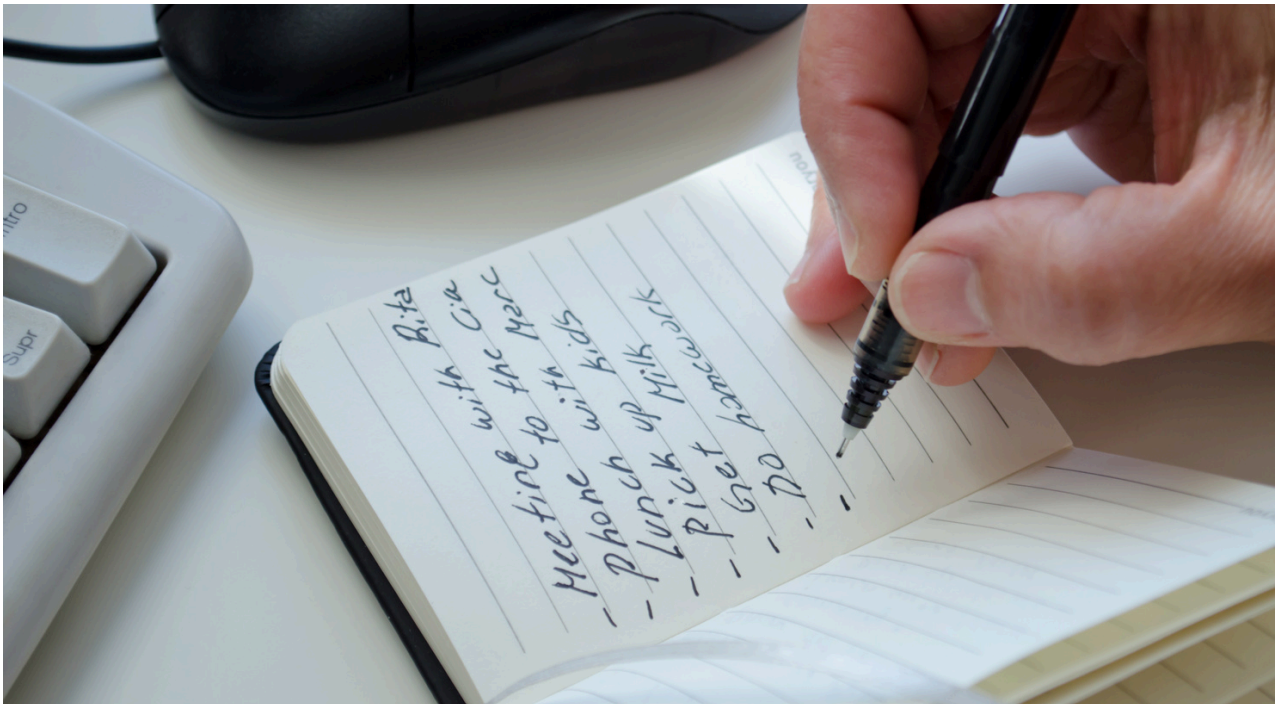 - Meeting with Rita
- Phone to the Cia
- Lunch with Marc
- Pick up kids
- Get Milk
- Do homework
-
Supr